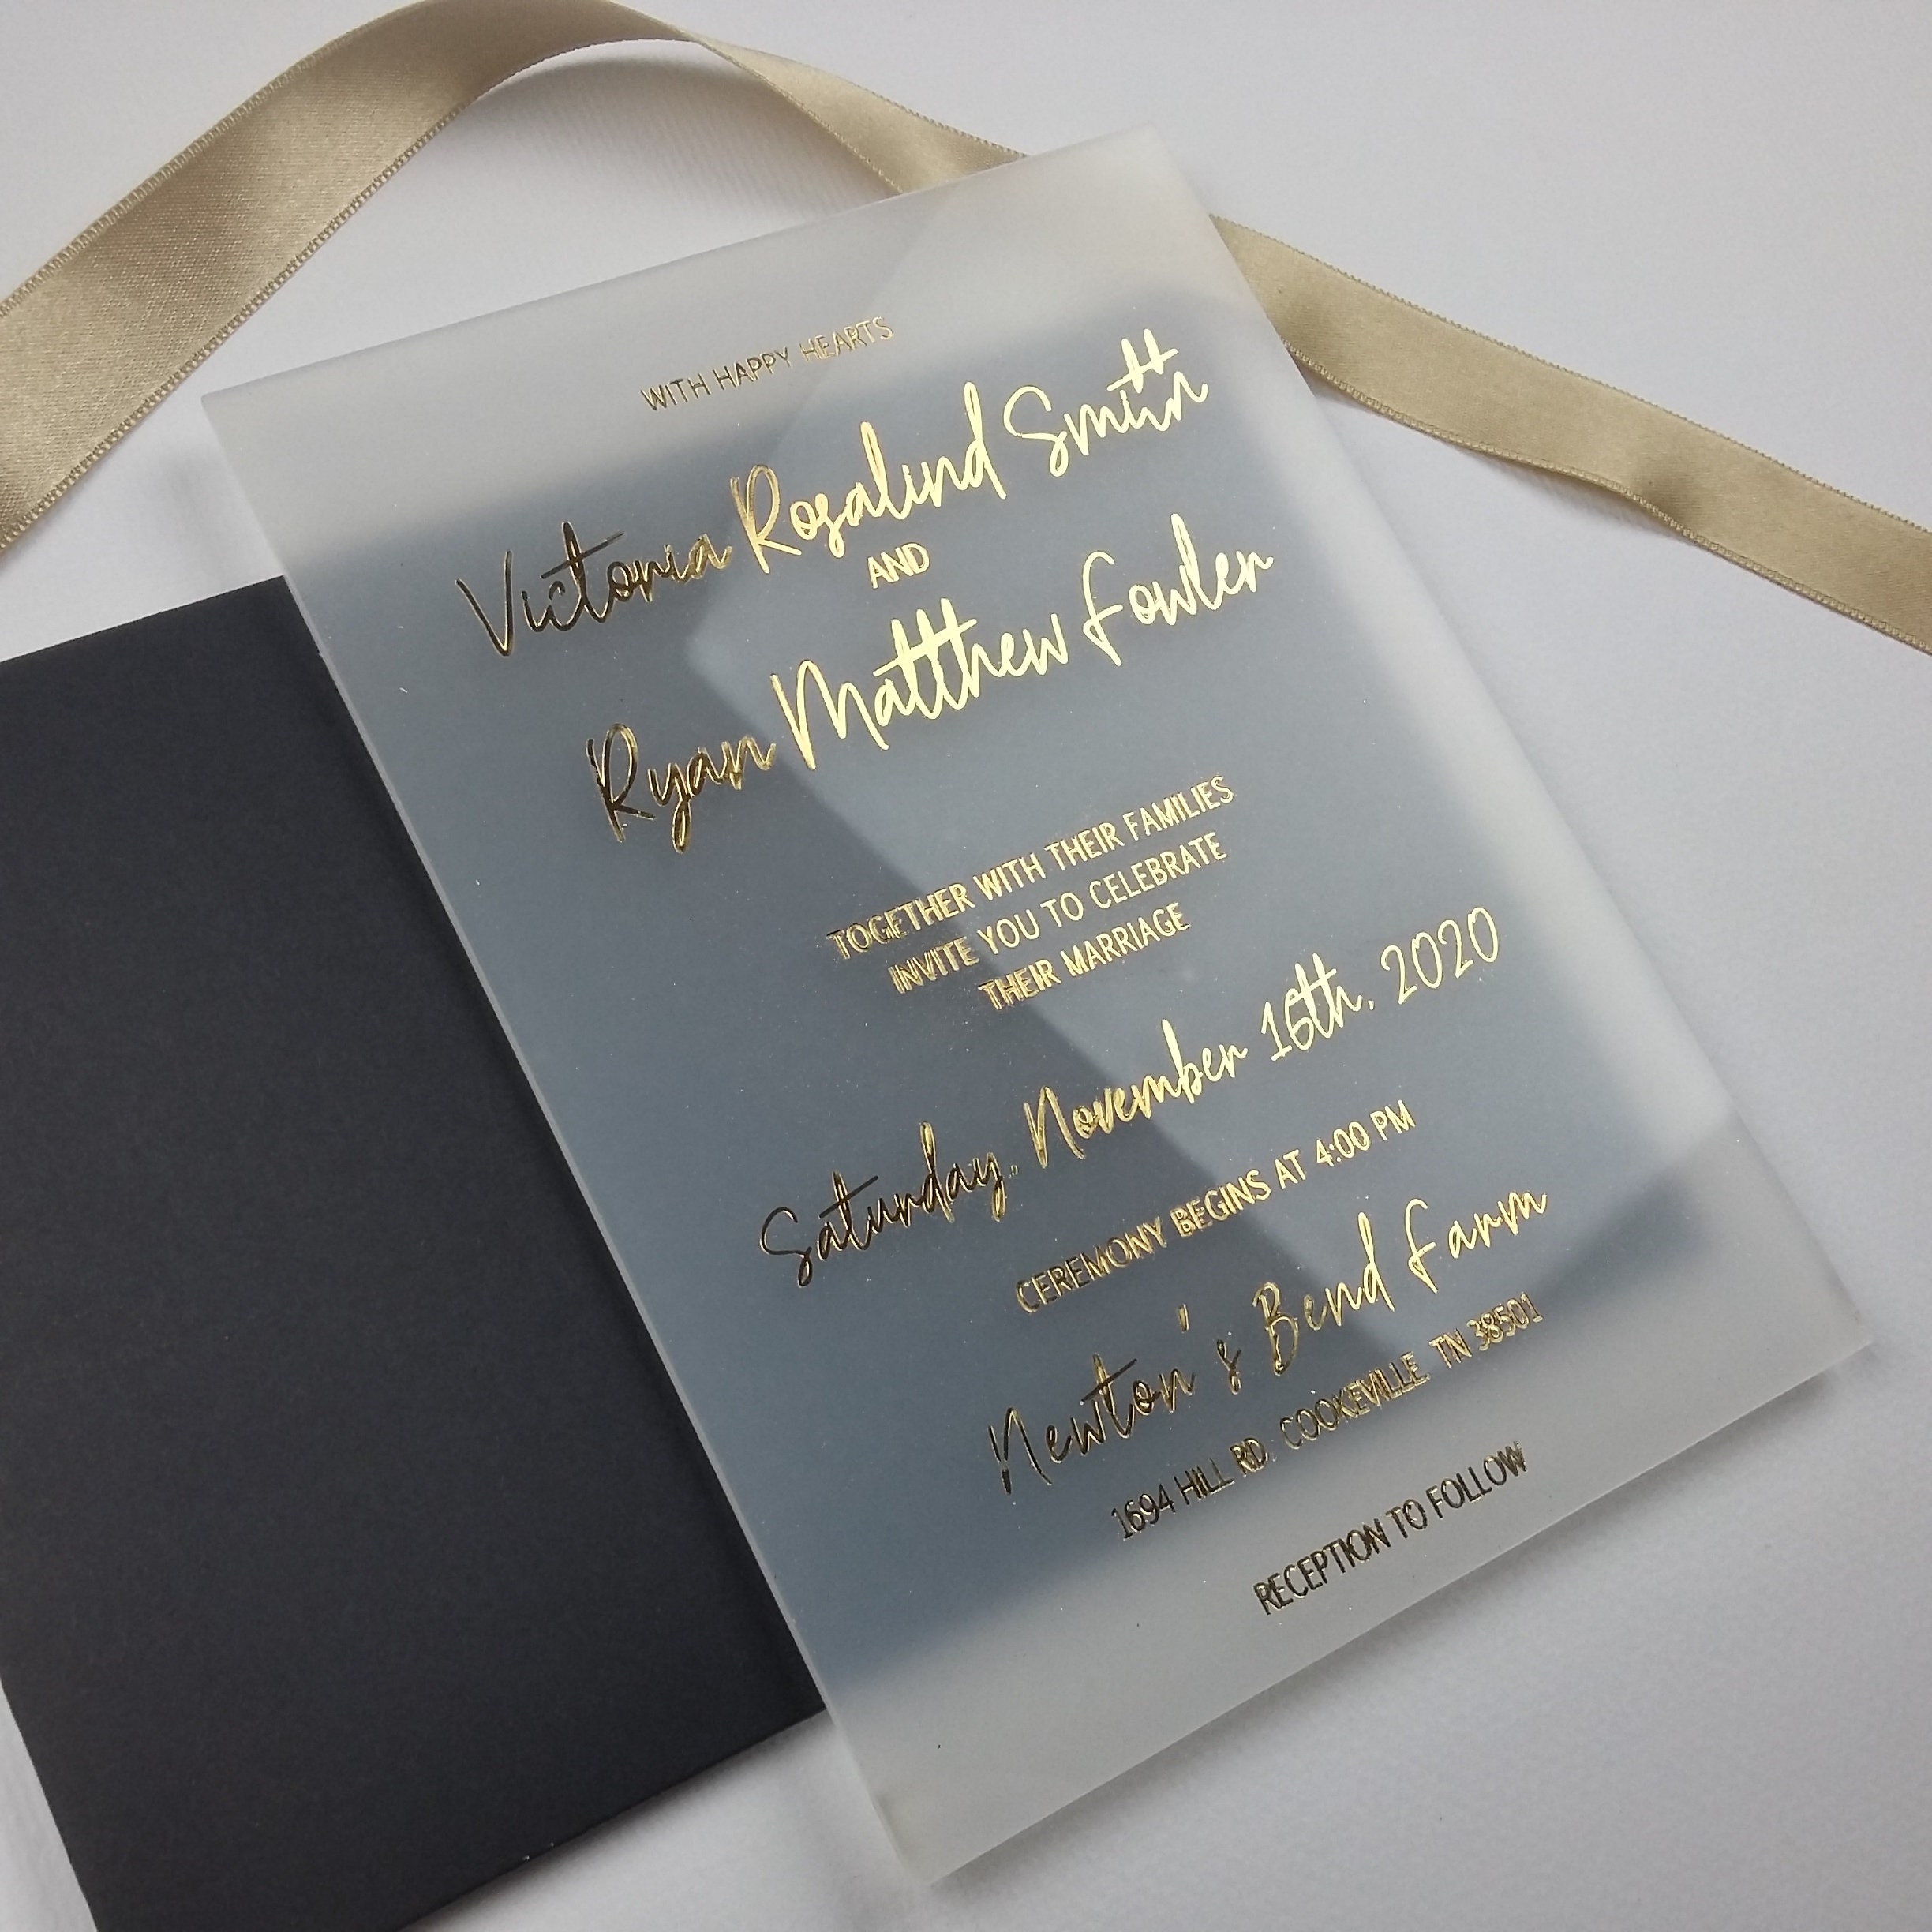 WITH HAPPY HEARTS
Victoria Rosalind Smith
AND
Ryan Matthew Fowler
TOGETHER WITH THEIR FAMILIES
INVITE YOU TO CELEBRATE
THEIR MARRIAGE
Saturday, November 16th, 2020
CEREMONY BEGINS AT 4:00 PM
Newton's Bend Farm
1694 HILL RD. COOKEVILLE, TN 38501
RECEPTION TO FOLLOW